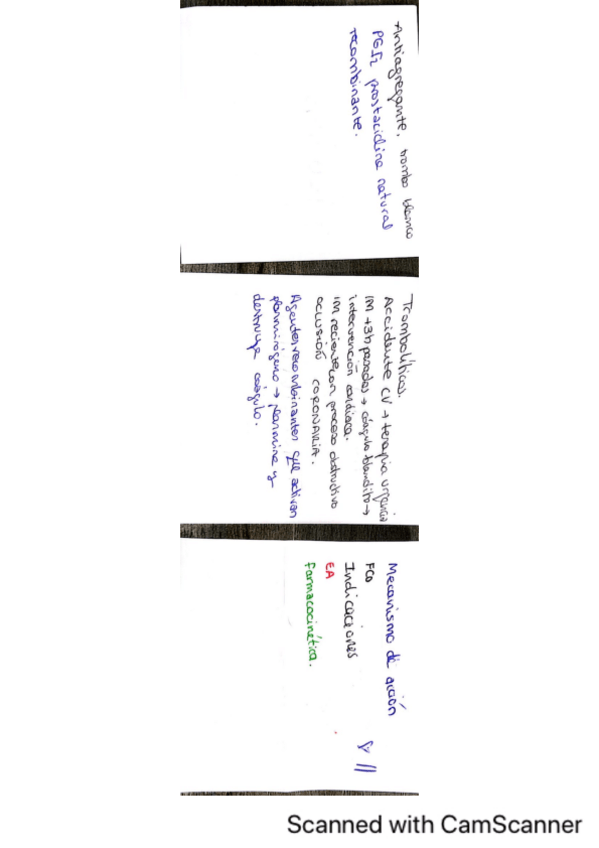 Antiagregante, trombo blanco
PGI2 prostaciclina natural
recombinante.
Trombolíticos.
Accidente CV → terapia urgencia
IM → 3h pasadas → coágulo blandito →
intervención cardíaca.
IM reciente con proceso obstructivo
oclusión CORONARIA.
Agentes recombinantes que activan
plasminógeno → plasmina y
destruye coágulo.
Mecanismo de acción
FCO
Indicaciones
EA
Farmacocinética.
Scanned with CamScanner